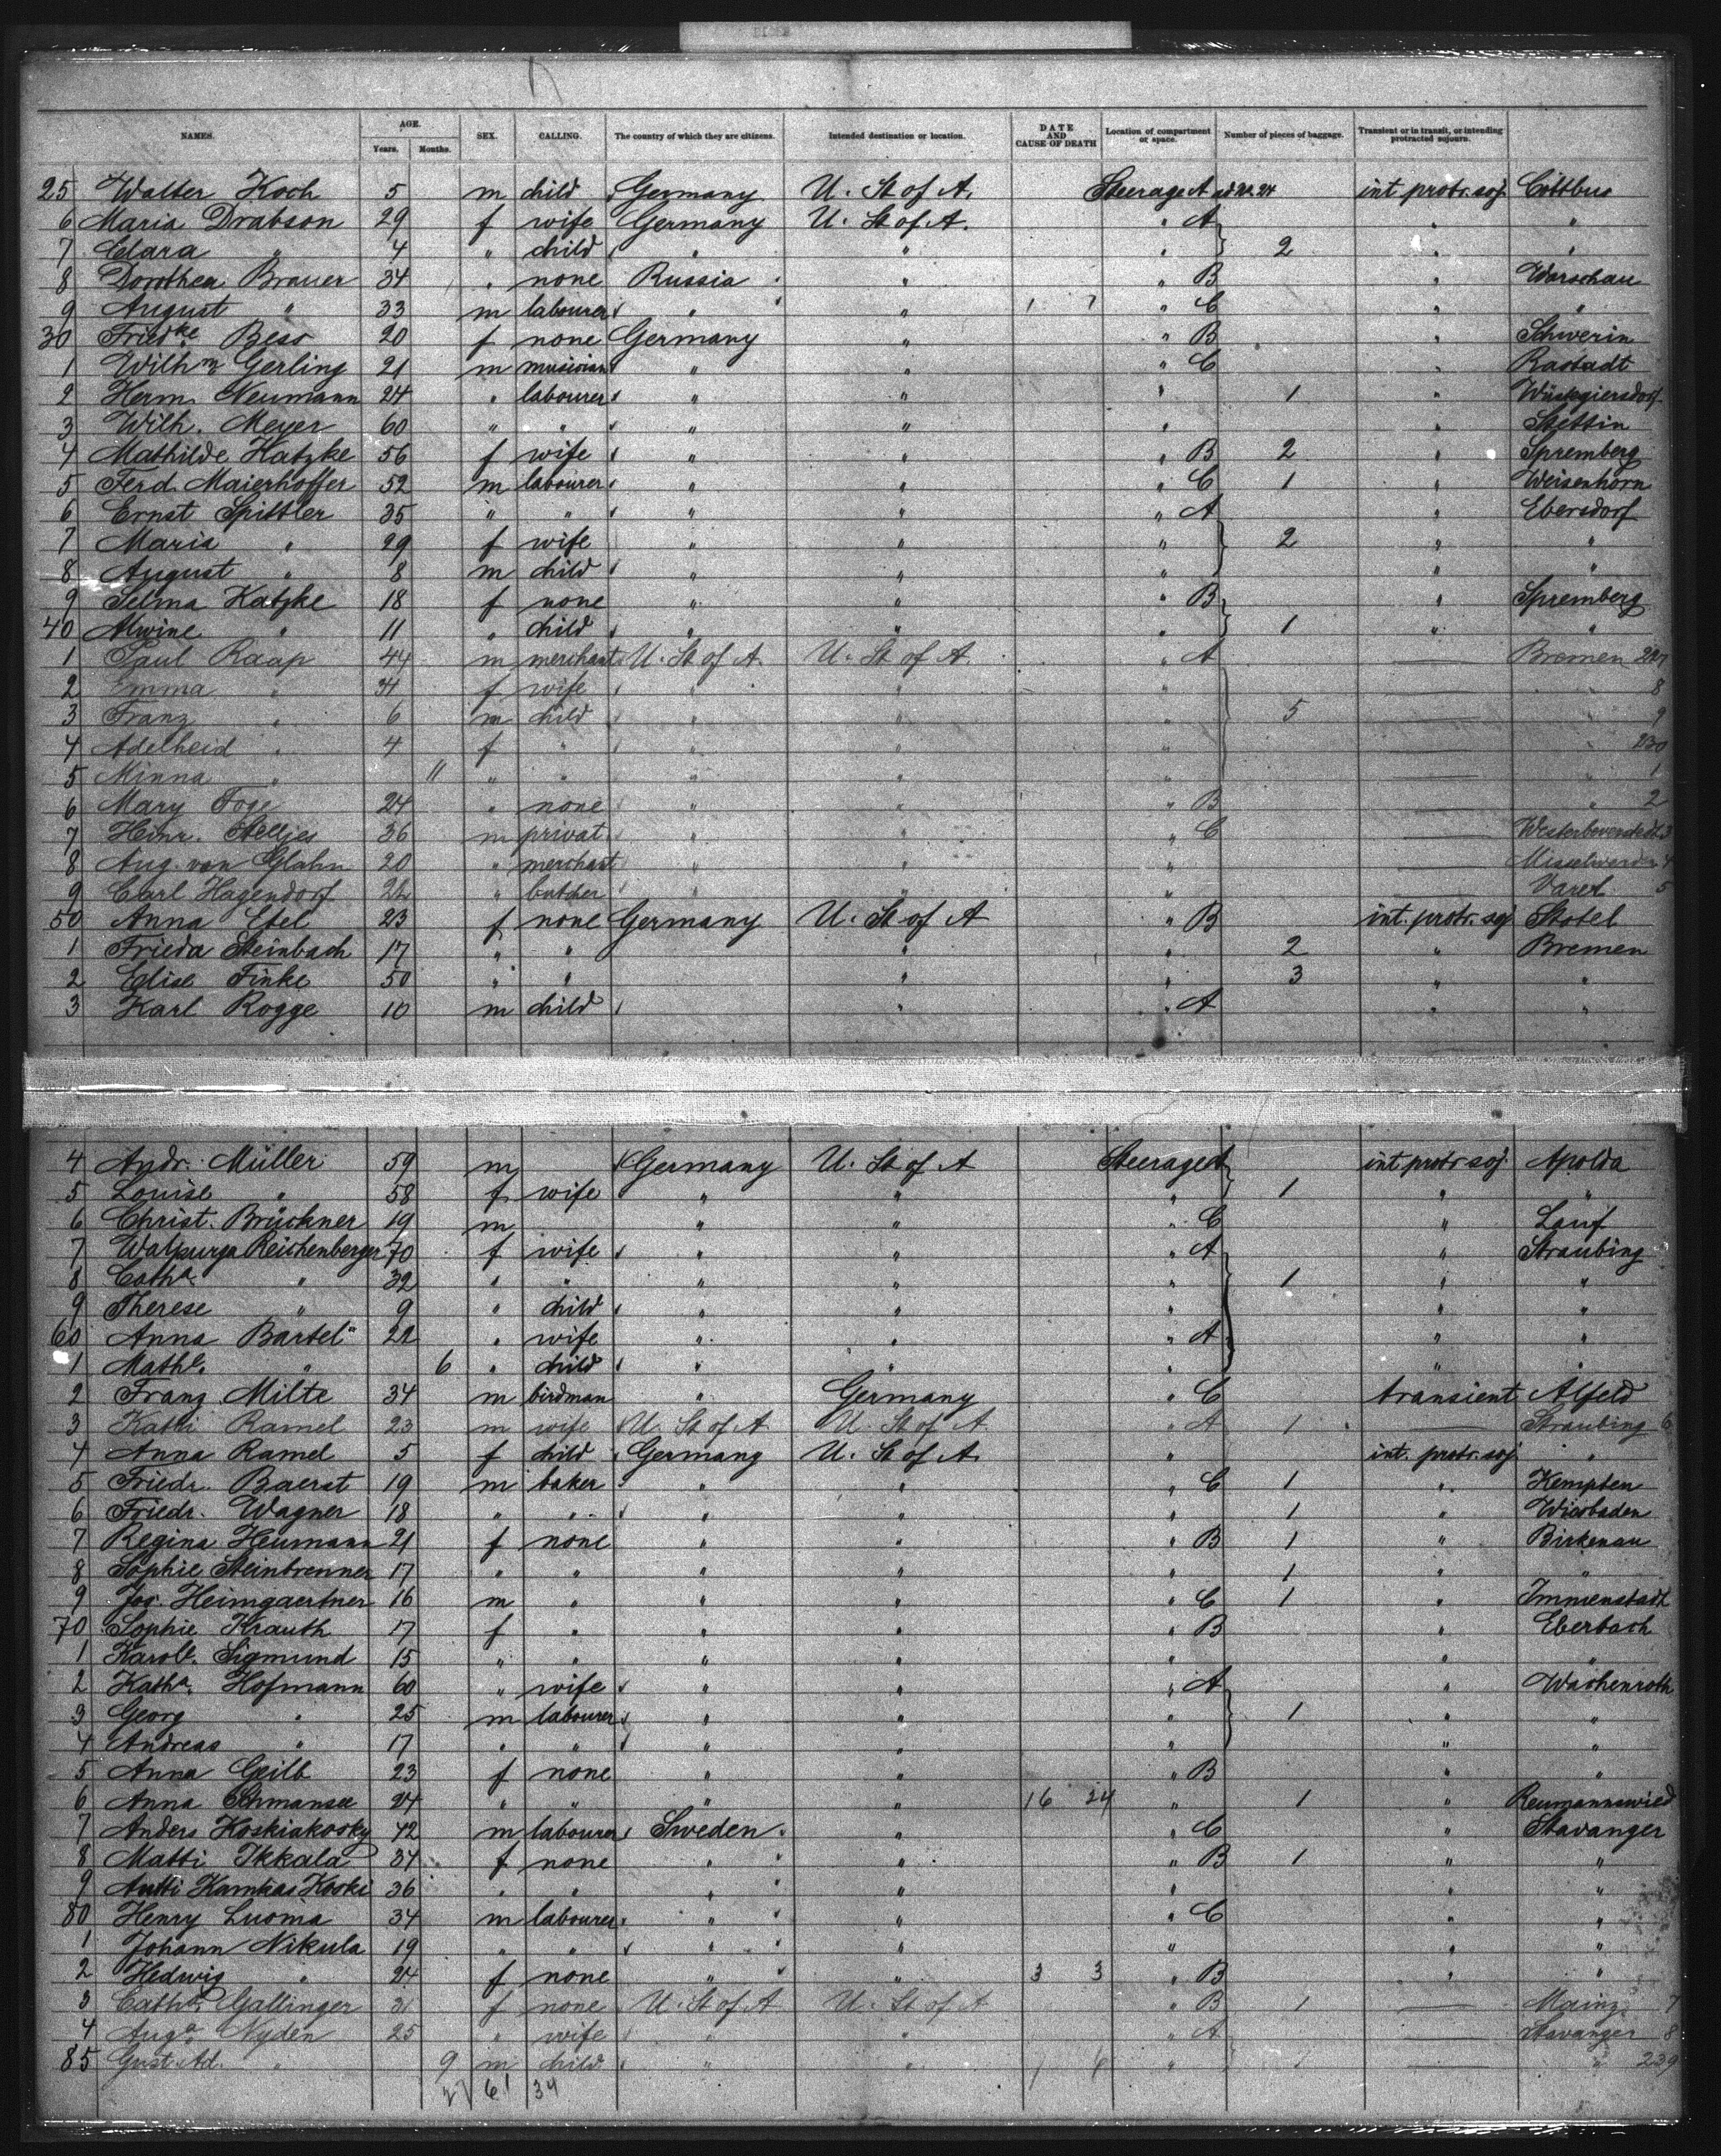 NAMES. AGE. Years. Months. SEX. CALLING. The country of which they are citizens. Intended destination or location. DATE AND CAUSE OF DEATH Location of compartment or space. Number of pieces of baggage. Transient or in transit, or intending protracted sojourn.
25 Walter Koch 5 m child Germany U. St of A. Steerage A int protr. soj. Cottbus
6 Maria Drabson 29 f wife Germany U. St of A. " A " "
7 Clara " 4 " child " " " 2 " "
8 Dorothea Brauer 34 " none Russia " " B " Warschau
9 August " 33 m labourer " " 1 7 " C " "
30 Friedke Bess 20 f none Germany " " B " Schwerin
1 Wilhm Gerling 21 m musician " " " C " Rastadt
2 Herm. Neumann 24 " labourer " " " 1 " Wüstgiersdorf
3 Wilh. Meyer 60 " " " " " " Stettin
4 Mathilde Katzke 56 f wife " " " B 2 " Spremberg
5 Ferd. Maierhoffer 52 m labourer " " " C 1 " Weisenhorn
6 Ernst Spittler 35 " " " " " A " Ebersdorf
7 Maria " 29 f wife " " " 2 " "
8 August " 8 m child " " " " "
9 Selma Katzke 18 f none " " " B " Spremberg
40 Alwine " 11 " child " " " 1 " "
1 Paul Raap 44 m merchant U. St of A. U. St of A. " A — Bremen 227
2 Emma " 31 f wife " " " — " 8
3 Franz " 6 m child " " " 5 — " 9
4 Adelheid " 4 f " " " " — " 230
5 Minna " 11 " " " " " — " 1
6 Mary Foge 24 " none " " " B — " 2
7 Heinr. Stelljes 36 m privat. " " " C — Westerbeverstedt 3
8 Aug. von Glahn 20 " merchant " " " — Misselwarden 4
9 Carl Hagendorf 22 " butcher " " " — Varel 5
50 Anna Etel 23 f none Germany U. St of A " B int. protr. soj Stotel
1 Frieda Steinbach 17 " " " " 2 " Bremen
2 Elise Finke 50 " " " " 3 " "
3 Karl Rogge 10 m child " " A " "
4 Andr. Müller 59 m Germany U. St of A Steerage A int protr soj. Apolda
5 Louise " 58 f wife " " " 1 " "
6 Christ. Brückner 19 m " " " C " Lauf
7 Walpurga Reichenberger 70 f wife " " " A " Straubing
8 Catha. " 32 " " " " " 1 " "
9 Therese " 9 " child " " " " "
60 Anna Bartel 22 " wife " " " A " "
1 Mathe. " 6 " child " " " " "
2 Franz Milte 34 m birdman " Germany " C transient Alfeld
3 Kathi Ramel 23 m wife U. St of A U. St of A. " A 1 — Straubing 6
4 Anna Ramel 5 f child Germany U. St of A. " int. protr. soj "
5 Friedr. Baerst 19 m baker " " " C 1 " Kempten
6 Friedr. Wagner 18 " " " " " 1 " Wiesbaden
7 Regina Heumann 21 f none " " " B 1 " Birkenau
8 Sophie Steinbrenner 17 " " " " " 1 " "
9 Jos. Heimgaertner 16 m " " " " C 1 " Immenstadt
70 Sophie Krauth 17 f " " " " B " Eberbach
1 Karole. Sigmund 15 " " " " " " "
2 Katha. Hofmann 60 " wife " " " A " Wachenroth
3 Georg " 25 m labourer " " " 1 " "
4 Andreas " 17 " " " " " " "
5 Anna Geilb 23 f none " " " B " "
6 Anna Schmansee 24 " " " " 16 24 " 1 " Reumannswied
7 Anders Koskiakosky 42 m labourer Sweden " " C " Stavanger
8 Matti Ikkala 34 f none " " " B 1 " "
9 Antti Kamkas Koski 36 " " " " " " "
80 Henry Luoma 34 m labourer " " " C " "
1 Johann Nikula 19 " " " " " " "
2 Hedwig " 24 f none " " 3 3 " B " "
3 Cathe. Gallinger 31 f none U. St of A U. St of A " B 1 — Mainz 7
4 Auga. Nyden 25 " wife " " " A — Stavanger 8
85 Gust. Ad. " 9 m child " " 1 6 " 1 — " 239
27 61 34